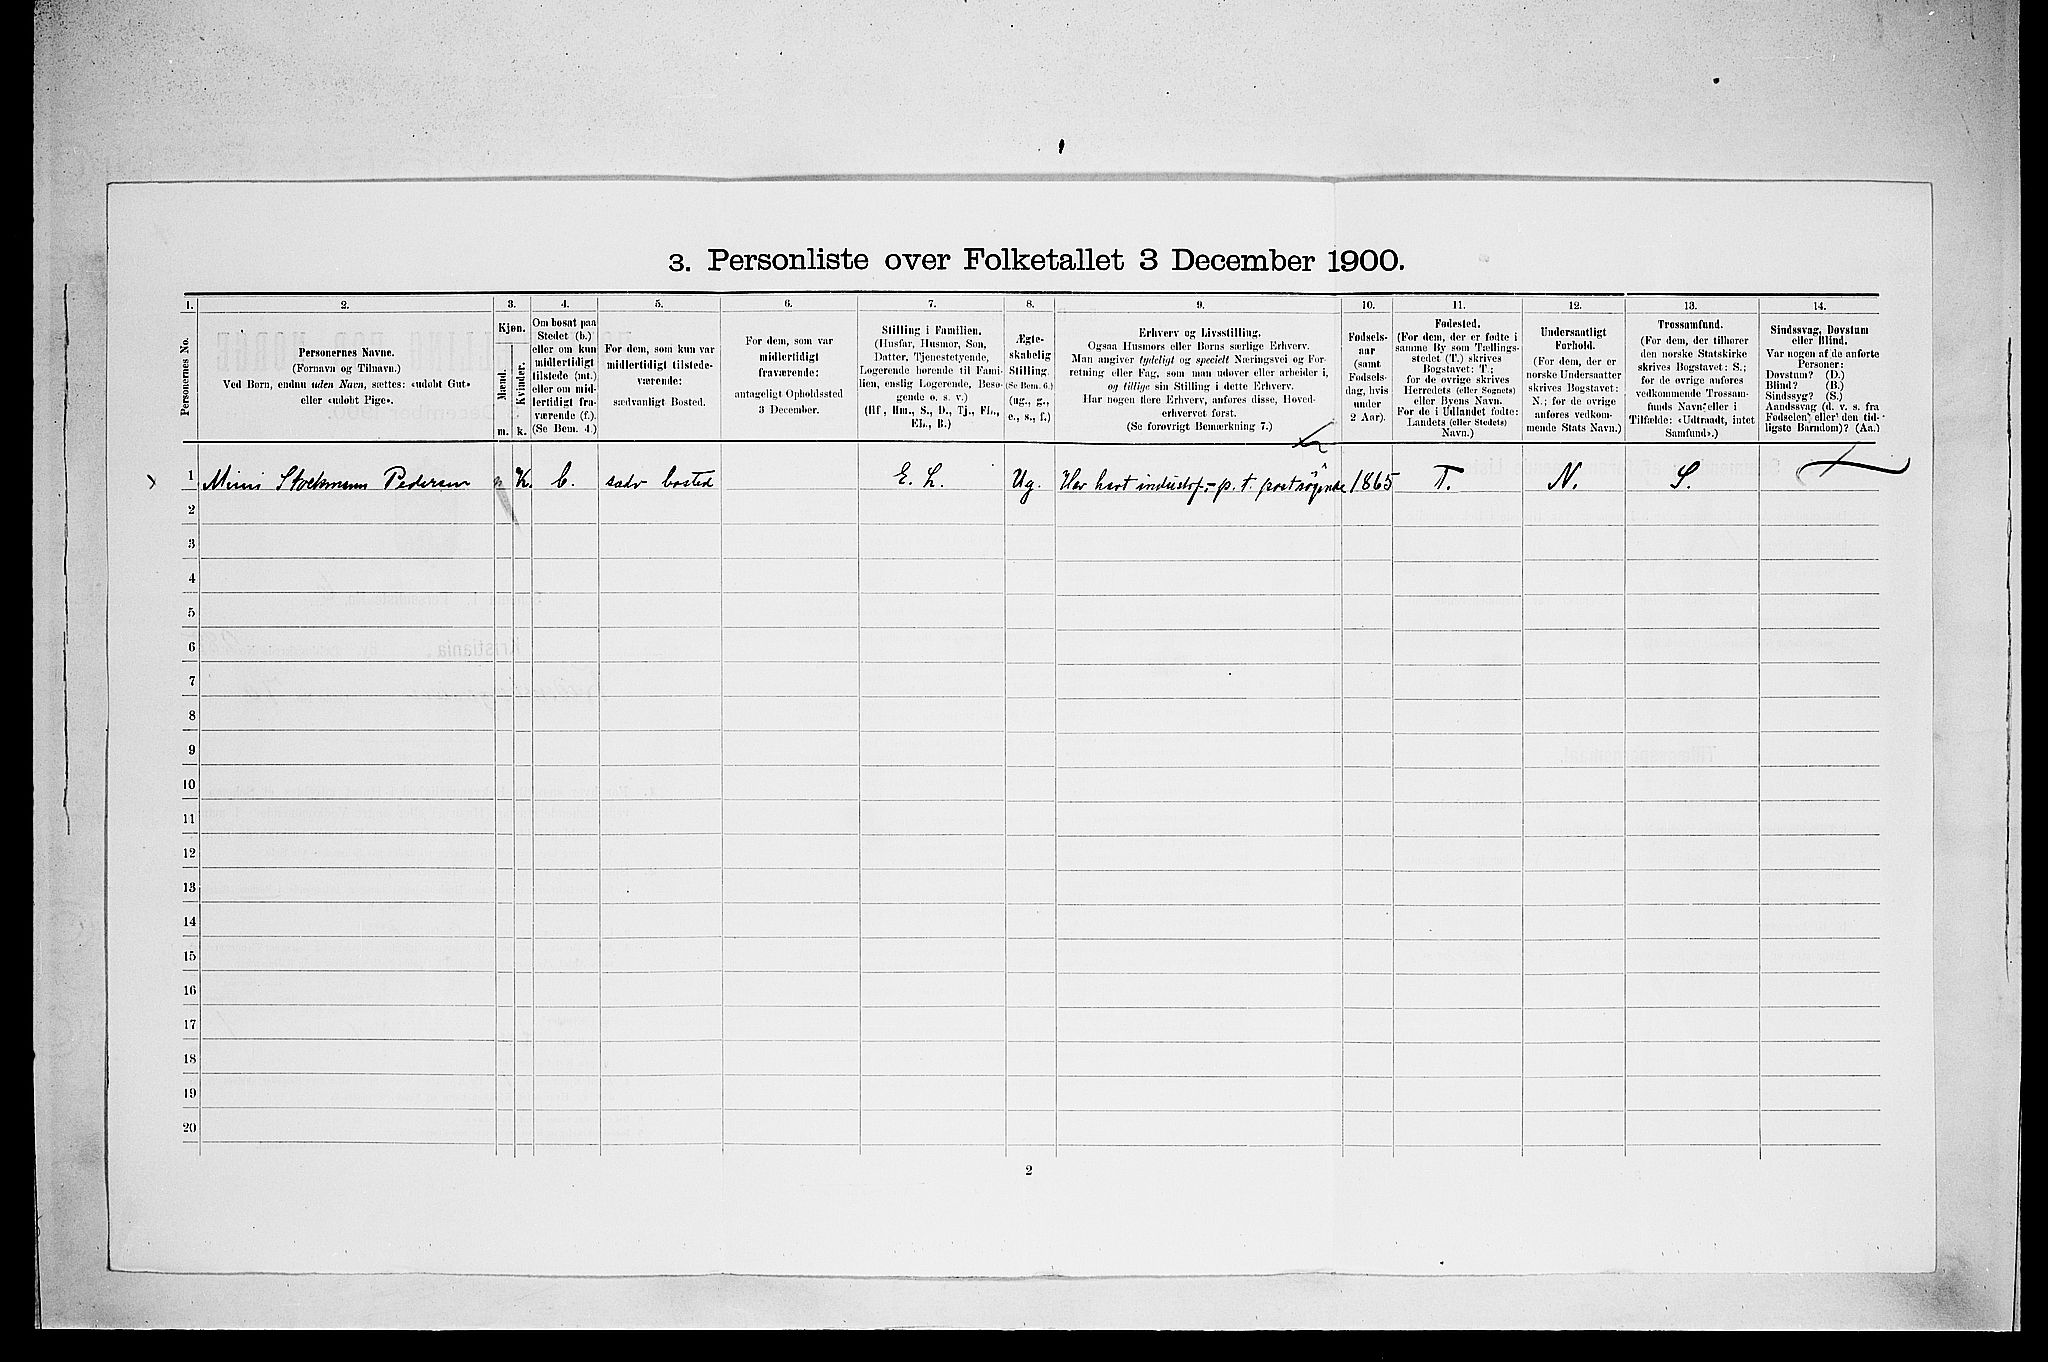 3. Personliste over Folketallet 3 December 1900.
1.
2.
3.
4.
5.
6.
7.
8.
9.
10.
11.
12.
13.
14.
Personernes No.
Personernes Navne.
(Fornavn og Tilnavn.)
Ved Børn, endnu uden Navn, sættes: «udøbt Gut»
eller «udøbt Pige».
Kjøn.
Mænd.
m.
Kvinder.
k.
Om bosat paa
Stedet (b.)
eller om kun
midlertidigt
tilstede (mt.)
eller om mid-
lertidigt fra-
værende (f.).
(Se Bem. 4.)
For dem, som kun var
midlertidigt tilstede-
værende:
sædvanligt Bosted.
For dem, som var
midlertidigt
fraværende:
antageligt Opholdssted
3 December.
Stilling i Familien.
(Husfar, Husmor, Søn,
Datter, Tjenestetyende,
Logerende hørende til Fami-
lien, enslig Logerende, Besø-
gende o. s. v.)
(Hf., Hm., S., D., Tj., FL.,
EL., B.)
Ægte-
skabelig
Stilling.
(Se Bem. 6.)
(ug., g.,
e., s., f.)
Erhverv og Livsstilling.
Ogsaa Husmors eller Børns særlige Erhverv.
Man angiver tydeligt og specielt Næringsvei og For-
retning eller Fag, som man udøver eller arbeider i,
og tillige sin Stilling i dette Erhverv.
Har nogen flere Erhverv, anføres disse, Hoved-
erhvervet først.
(Se forøvrigt Bemærkning 7.)
Fødsels-
aar
(samt
Fødsels-
dag, hvis
under
2 Aar).
Fødested.
(For dem, der er fødte i
samme By som Tællings-
stedet (T.) skrives
Bogstavet: T.;
for de øvrige skrives
Herredets (eller Sognets)
eller Byens Navn.
For de i Udlandet fødte:
Landets (eller Stedets)
Navn.)
Undersaatligt
Forhold.
(For dem, der er
norske Undersaatter
skrives Bogstavet:
N.; for de øvrige
anføres vedkom-
mende Stats Navn.)
Trossamfund.
(For dem, der tilhører
den norske Statskirke
skrives Bogstavet: S.;
for de øvrige anføres
vedkommende Trossam-
funds Navn, eller i
Tilfælde: «Udtraadt, intet
Samfund».)
Sindssvag, Døvstum
eller Blind.
Var nogen af de anførte
Personer:
Døvstum? (D.)
Blind? (B.)
Sindssyg? (S.)
Aandssvag (d. v. s. fra
Fødselen eller den tid-
ligste Barndom)? (Aa.)
1 Mimi Stockmann Pedersen K. b. sædv bosted E. L. Ug. Har havt industrf.- p. t. 1865 T. N. S.
2
3
4
5
6
7
8
9
10
11
12
13
14
15
16
17
18
19
20
2